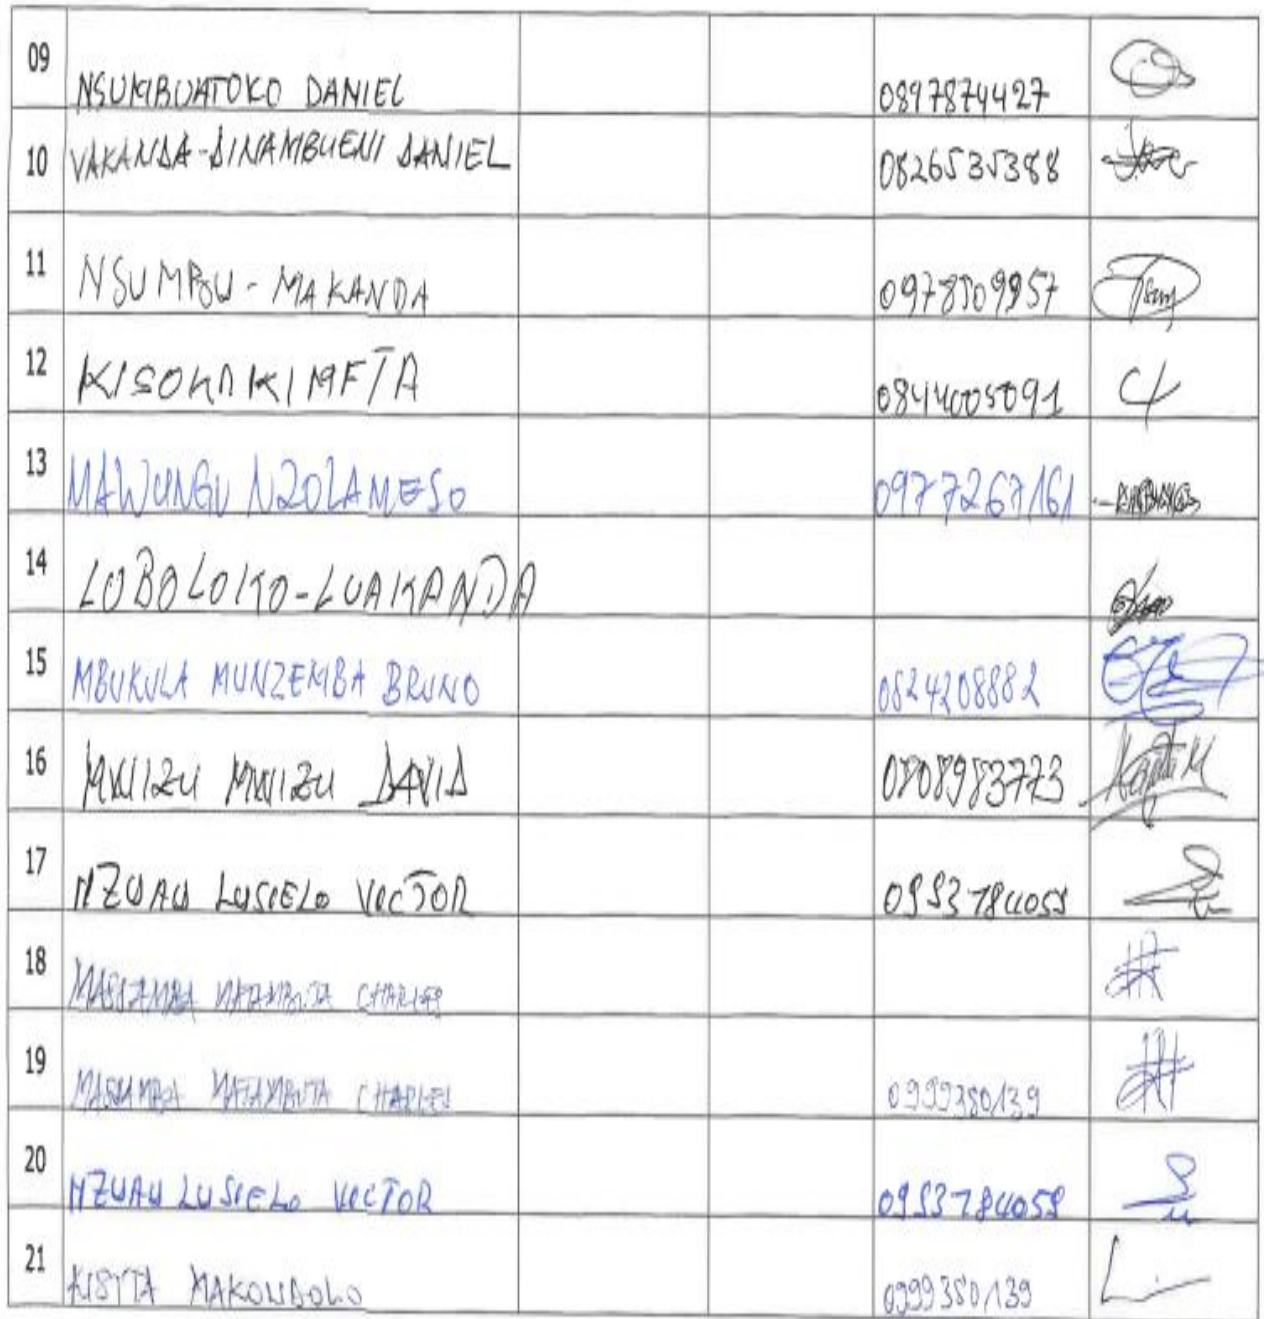 09 NSUKIBUATOKO DANIEL 0897874427
10 VAKANDA-DINAMBUENI DANIEL 0826535388
11 NSUMBU-MAKANDA 0978509957
12 KISOKA KIMFTA 0844005091
13 MAWUNGU NZOLAMESO 0977267161
14 LOBOLOKO-LUAKANDA
15 MBUKULA MUNZEMBA BRUNO 0824208882
16 MWIZU MWIZU DAVID 0808983773
17 NZUAU LUSIELO VICTOR
18 MASSAMBA MATAMBUTA CHARLES
19 MASSAMBA MATAMBUTA CHARLES 0999380139
20 NZUAU LUSIELO VICTOR
21 MAKONDOLO 0999380139